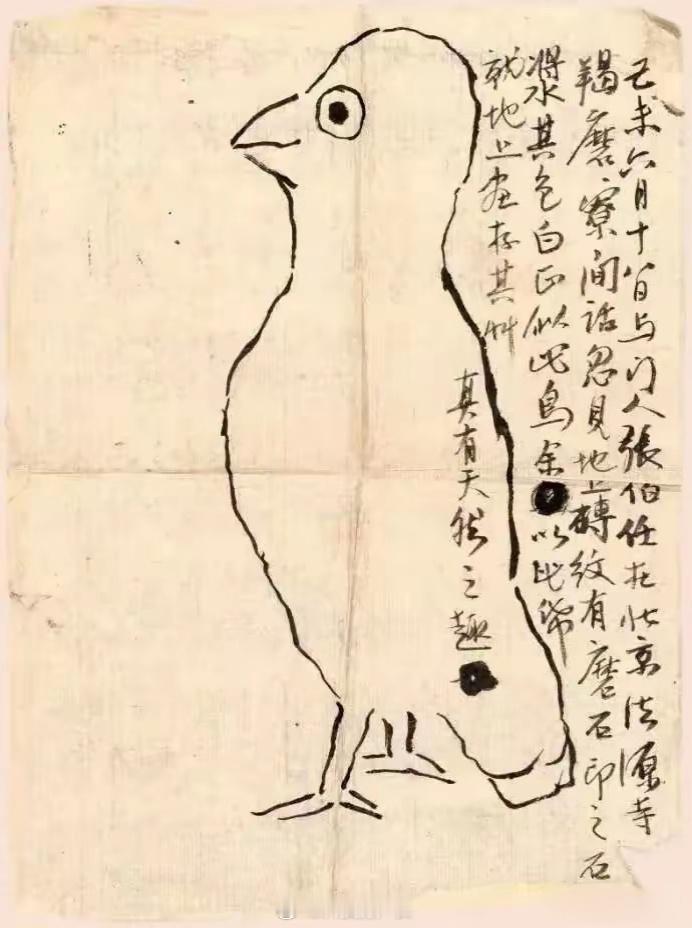 己未六月十八日与门人張伯任在北京法源寺
羯磨寮閒話忽見地上磚紋有磨石印之石
漿水其色白正似此鳥余以此紙
就地上畫存其草
真有天然之趣